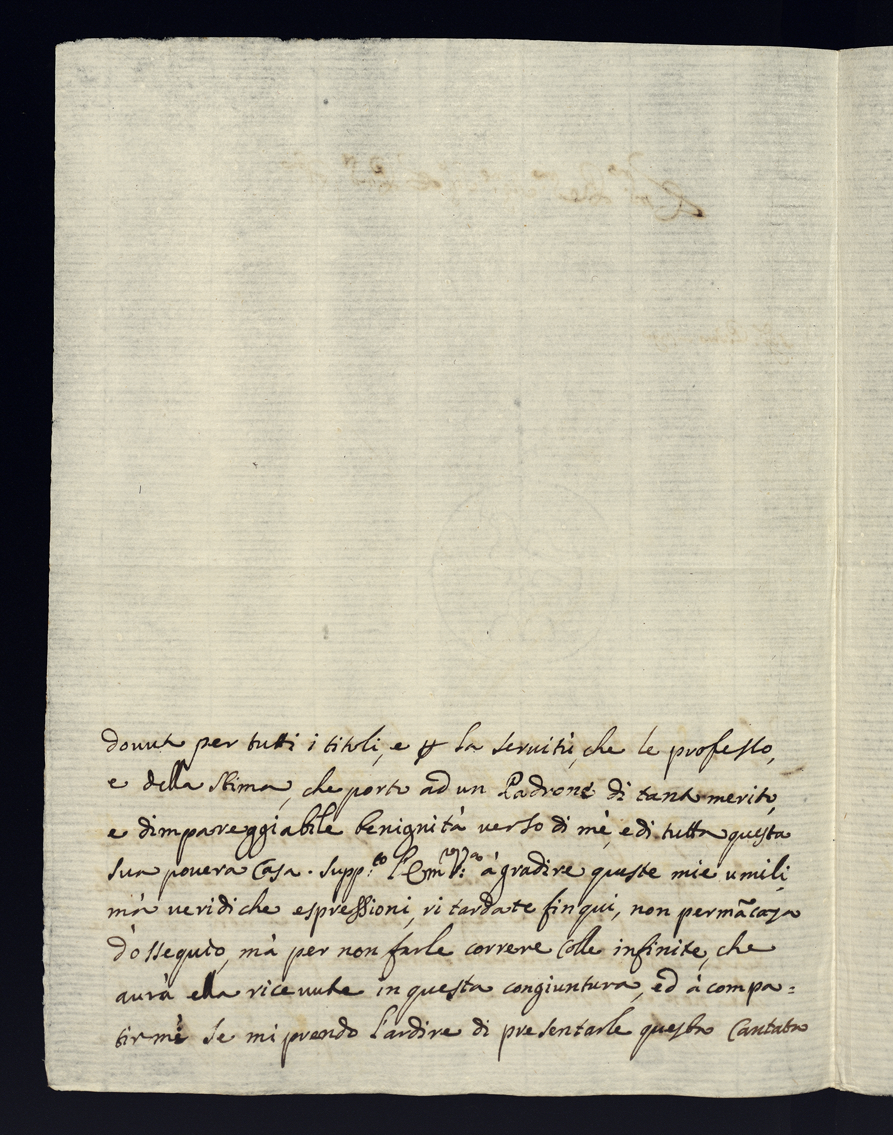 douute per tutti i titoli, e p la seruitù, che le professo,
e della stima, che porto ad un Padrone di tanto merito,
e dimpareggiabile benignità verso di mè, e di tutta questa
sua pouera Casa. Supp.co l'Em.za V.a à gradire queste mie umili,
mà veridiche espressioni, ritardate fin qui, non per mãcaza
d'ossequio, mà per non farle correre colle infinite, che
aurà ella riceuute in questa congiuntura, ed à compa=
tirmè se mi prendo l'ardire di presentarle questa Cantata